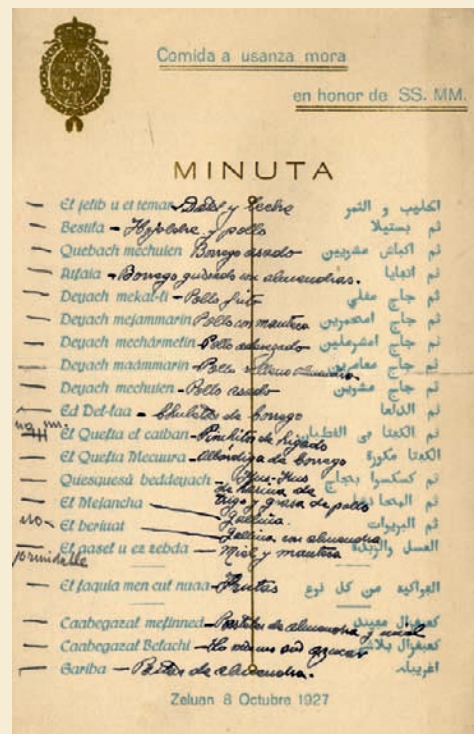 Comida a usanza mora
en honor de SS. MM.
MINUTA
El jelib u et temar Dátiles y leche الحليب و الثمر
Bestila - Hojaldre y pollo ثم بستيلا
Quebach mechuien Borrego asado ثم اكباش مشويين
Atfaia - Borrego guisado con almendras. ثم اتفايا
Deyach mekal-li - Pollo frito ثم جاج مقلي
Deyach mejammarin Pollo con manteca ثم جاج امحمرين
Deyach mechármelin - Pollo ثم جاج امشرملين
Deyach maâmmarin - Pollo relleno almendra. ثم جاج معامرين
Deyach mechuien - Pollo asado ثم جاج مشوين
Ed Del-laa - Chuletas de borrego ثم الدلعا
El Quefta el catban - Pinchitos de hígado ثم الكفتا
El Quefta Mecuura - Albóndiga de borrego الكفتا مكورة
Quesquesú beddeyach - Kus-Kus ثم كسكسوا بجاج
de harina de
trigo y grasa de pollo
El Mejancha
no - El beriuat con almendra ثم البريوات
El gasel u ez zebda - Miel y manteca العسل والزبدة
El faquia men cul nuaa - Frutas الفواكيه من كل نوع
Caabegazal mefinned - Pasteles de almendra y miel
Caabegazal Belachi - Lo mismo sin azucar
Gariba - Pastas de almendra. اغريبا
Zeluan 8 Octubre 1927